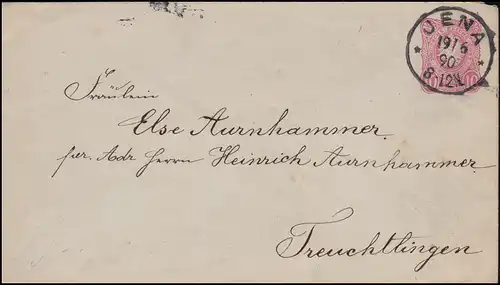 JENA
19 6
90
8-12V.
10
Fräulein
Else Aurnhammer.
per. Adr Herrn Heinrich Aurnhammer.
Treuchtlingen